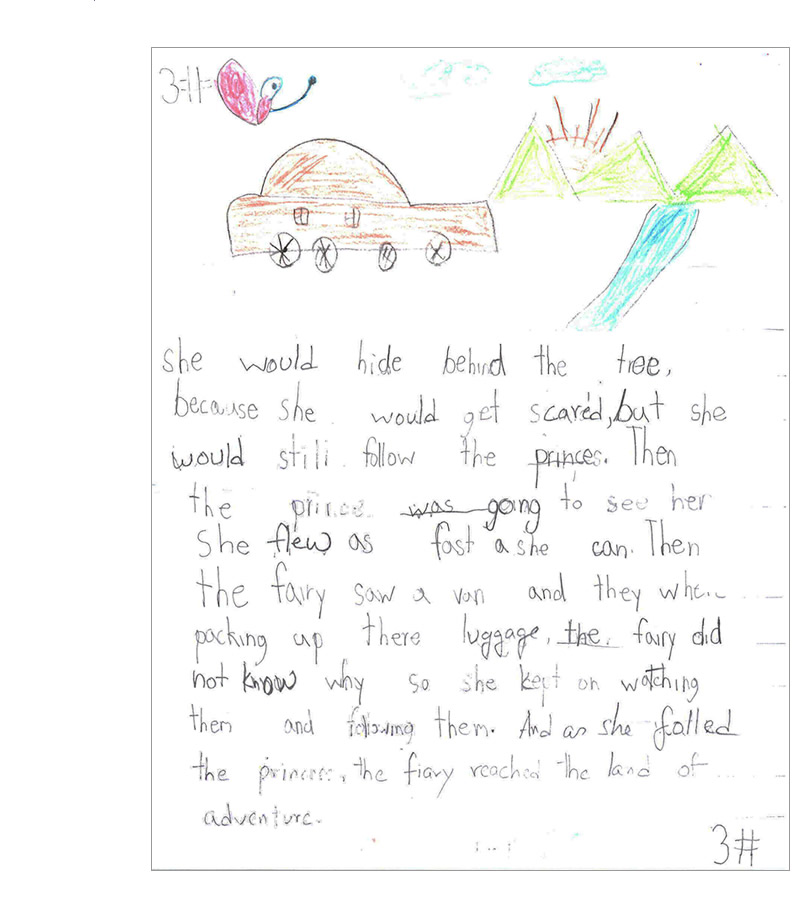 3#
she would hide behind the tree,
because she would get scared, but she
would still follow the princes. Then
the prince was going to see her
She flew as fast a she can. Then
the fairy saw a van and they wher
packing up there luggage, the fairy did
not know why so she kept on watching
them and following them. And as she folled
the princess, the fiary reached the land of
adventure.
3#